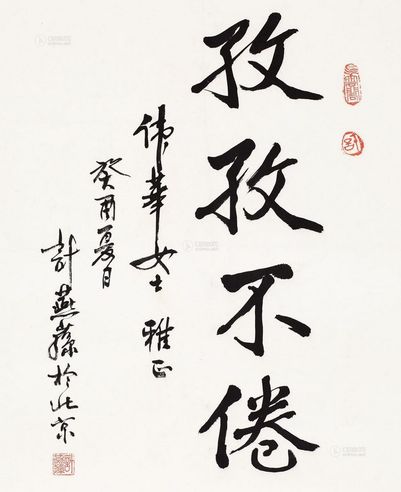 孜孜不倦
伟華女士 雅正
癸酉夏月
計燕蓀於北京